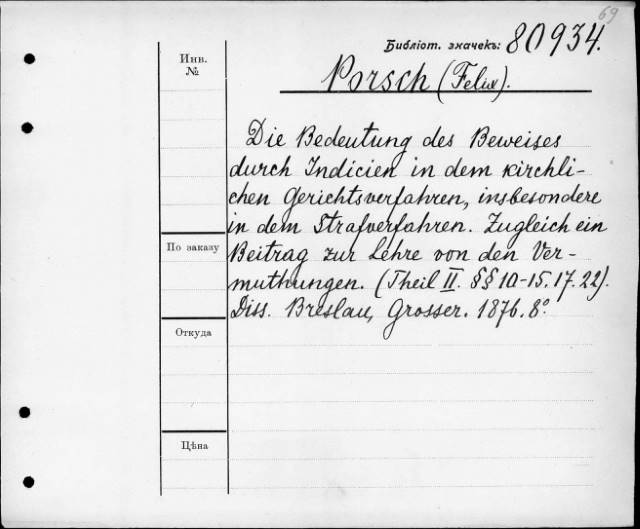 69
Библіот. значекъ: 80934.
Инв.
№
Porsch (Felix).
Die Bedeutung des Beweises
durch Indicien in dem kirchli-
chen Gerichtsverfahren, insbesondere
in dem Strafverfahren. Zugleich ein
По заказу
Beitrag zur Lehre von den Ver-
muthungen. (Theil II. §§ 10-15. 17. 22).
Diss. Breslau, Grosser. 1876. 8°
Откуда
Цѣна